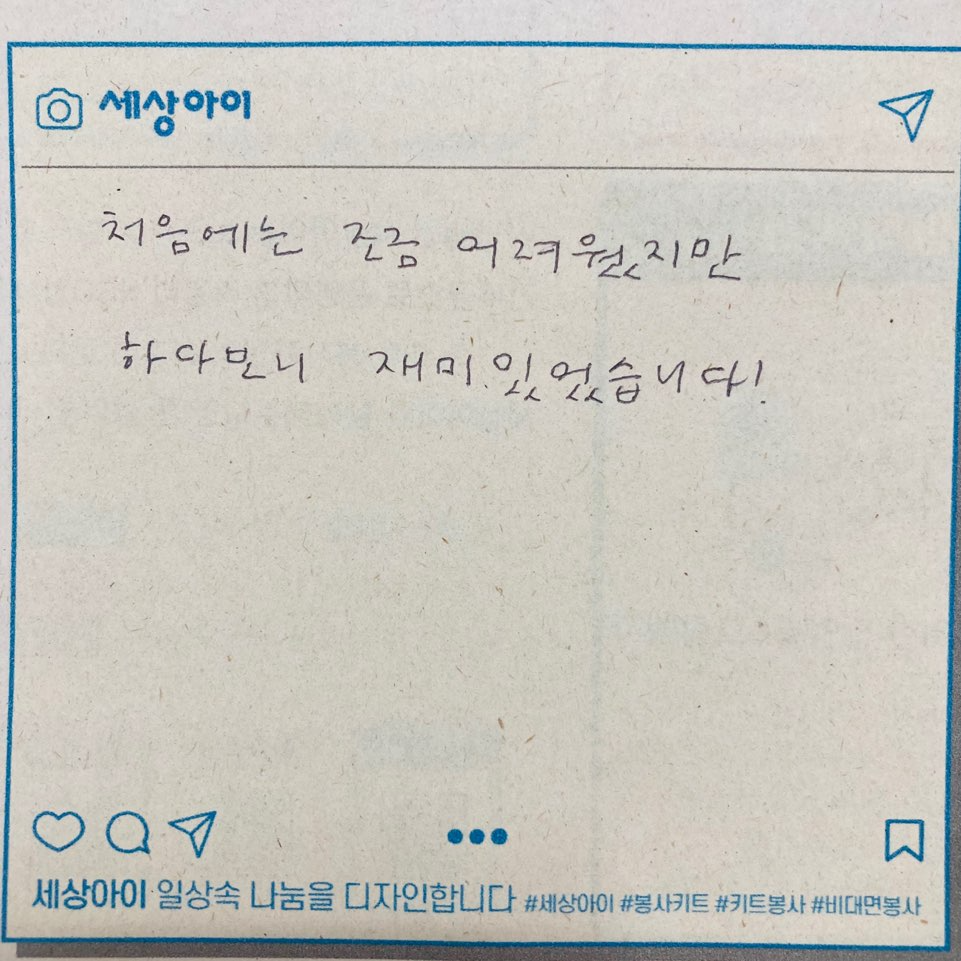 세상아이
처음에는 조금 어려웠지만
하다보니 재미있었습니다!
세상아이 일상속 나눔을 디자인합니다 #세상아이 #봉사키트 #키트봉사 #비대면봉사